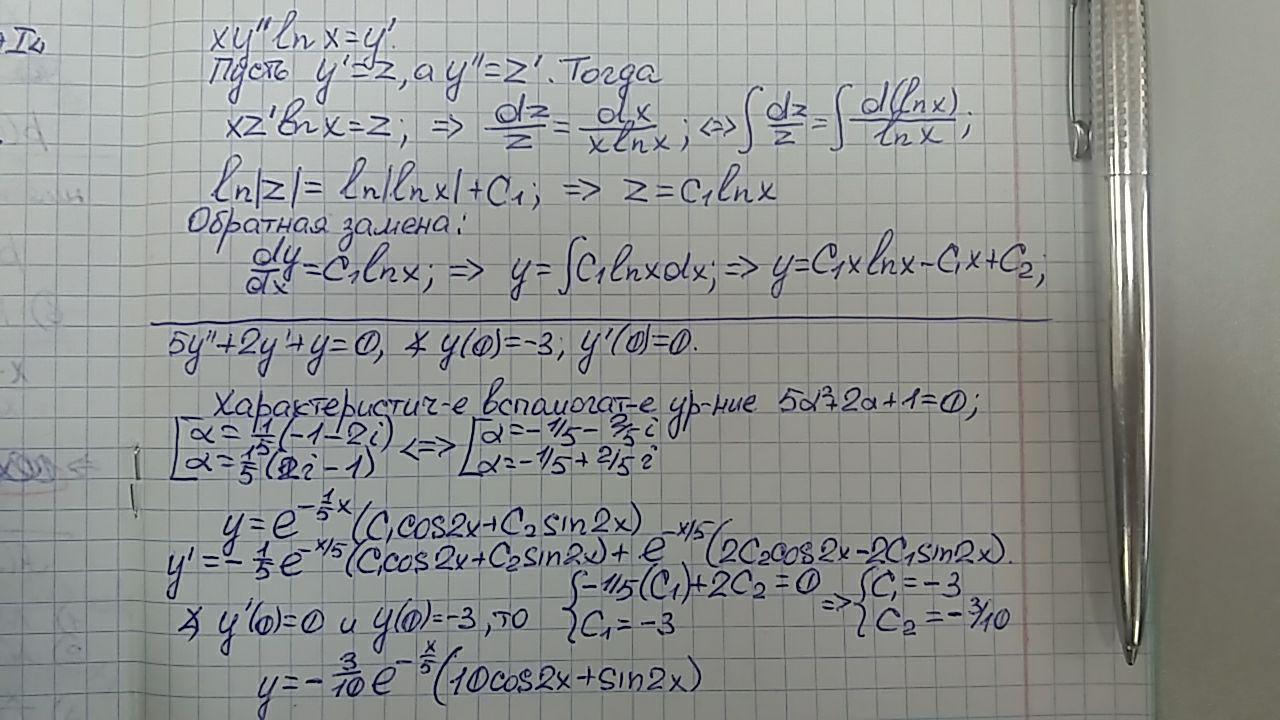 xy'' ln x = y'.
Пусть y' = z, а y'' = z'. Тогда
xz' ln x = z; => dz/z = dx/(x ln x); <=> ∫ dz/z = ∫ d(ln x)/ln x;
ln|z| = ln|ln x| + C₁; => z = C₁ ln x
Обратная замена:
dy/dx = C₁ ln x; => y = ∫C₁ ln x dx; => y = C₁x ln x - C₁x + C₂;
5y'' + 2y' + y = 0, ∡ y(0) = -3; y'(0) = 0.
Характеристич-е вспомогат-е ур-ние 5α² + 2α + 1 = 0;
[ α = 1/5(-1-2i) <=> [ α = -1/5 - 2/5 i
α = 1/5(2i-1) α = -1/5 + 2/5 i
y = e^(-1/5 x) (C₁cos2x + C₂sin2x)
y' = -1/5 e^(-x/5) (C₁cos2x + C₂sin2x) + e^(-x/5) (2C₂cos2x - 2C₁sin2x).
∡ y'(0) = 0 и y(0) = -3, то { -1/5(C₁) + 2C₂ = 0 => { C₁ = -3
C₁ = -3 C₂ = -3/10
y = -3/10 e^(-x/5) (10cos2x + sin2x)